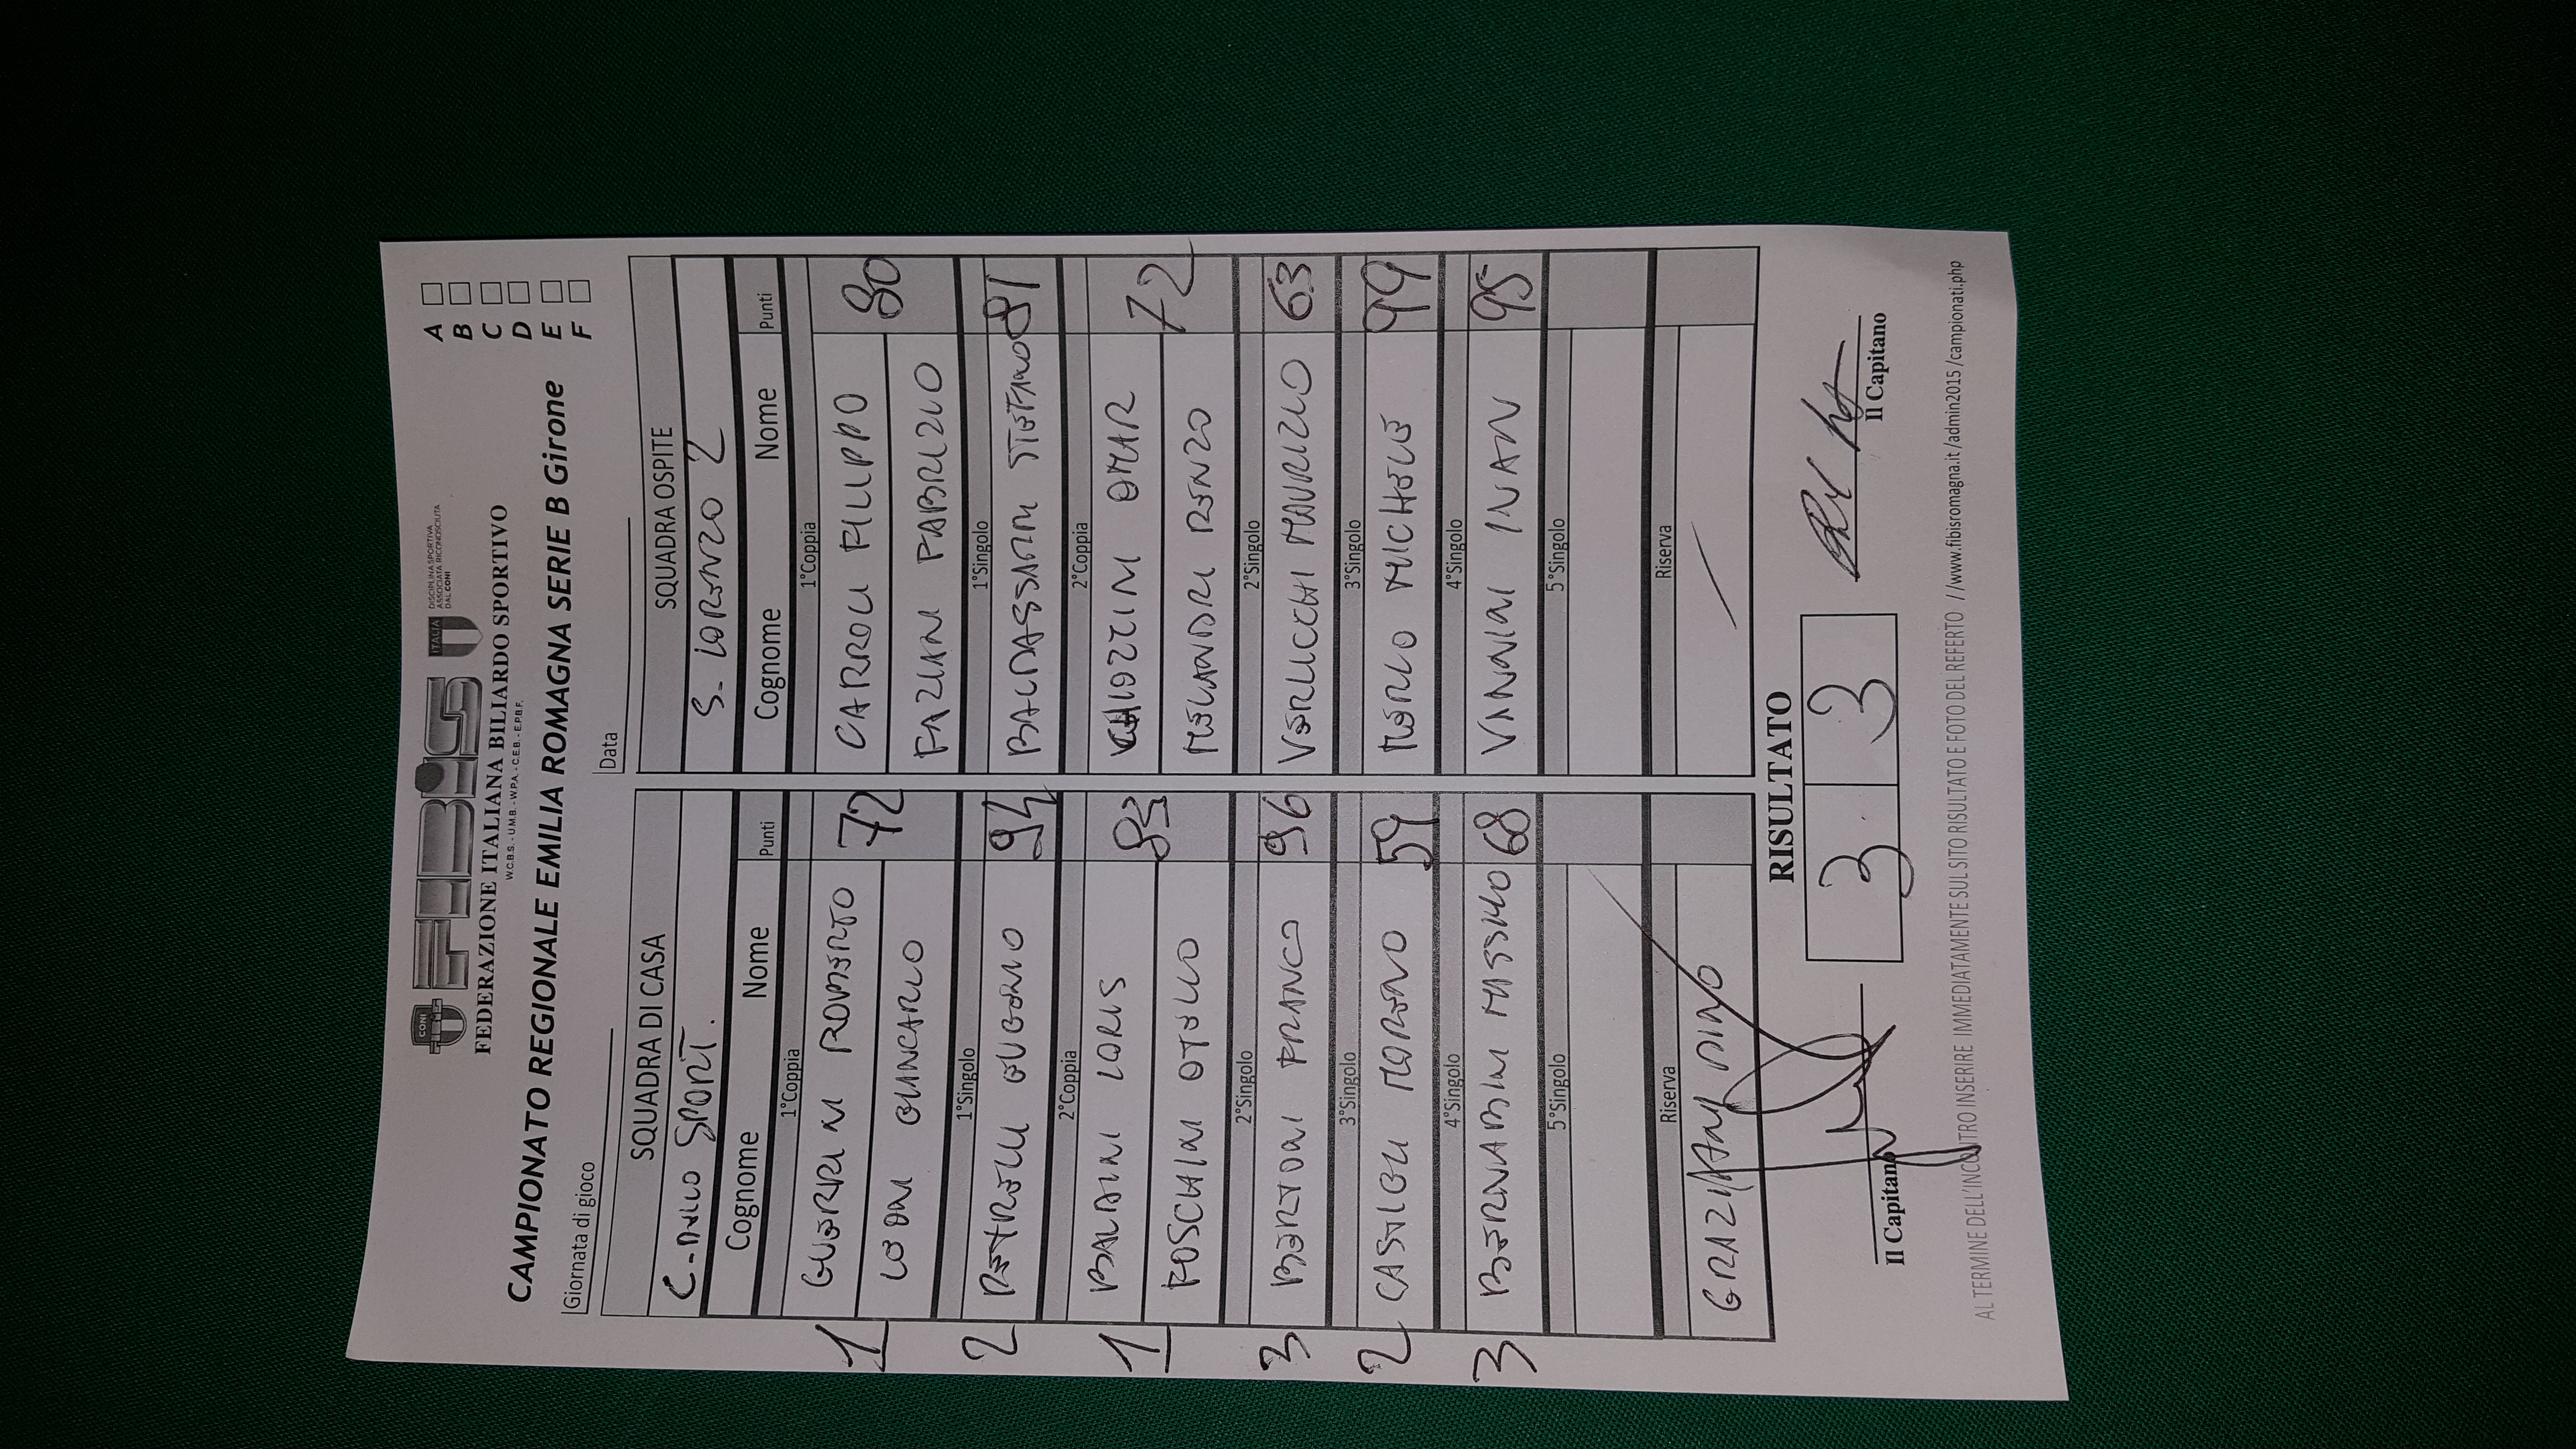 CONI
FIBiS
ITALIA
DISCIPLINA SPORTIVA
ASSOCIATA RICONOSCIUTA
DAL CONI
FEDERAZIONE ITALIANA BILIARDO SPORTIVO
W.C.B.S. - U.M.B. - W.P.A. - C.E.B. - E.P.B.F.
CAMPIONATO REGIONALE EMILIA ROMAGNA SERIE B Girone
A
B
C
D
E
F
Giornata di gioco
Data
SQUADRA DI CASA
SPORT.
Cognome Nome Punti
1°Coppia
GUERRINI ROBERTO 72
LEONI GIANCARLO
1°Singolo
EUGENIO 94
2°Coppia
BALDINI LORIS 83
FOSCHINI OTELLO
2°Singolo
BERTONI FRANCO 96
3°Singolo
CASTIGLI MORENO 59
4°Singolo
BERNABINI MASSIMO 68
5°Singolo
Riserva
GRAZIANI DINO
1
2
1
3
2
3
SQUADRA OSPITE
S. LORENZO 2
Cognome Nome Punti
1°Coppia
CARROLI FILIPPO 80
FAZIANI FABRIZIO
1°Singolo
BALDASSARRI STEFANO 81
2°Coppia
OMAR 72
MELANDRI RENZO
2°Singolo
VERLICCHI MAURIZIO 63
3°Singolo
MERLO MICHELE 99
4°Singolo
VANNINI IVAN 95
5°Singolo
Riserva
RISULTATO
3 3
Il Capitano
Il Capitano
AL TERMINE DELL'INCONTRO INSERIRE IMMEDIATAMENTE SUL SITO RISULTATO E FOTO DEL REFERTO //www.fibisromagna.it/admin2015/campionati.php